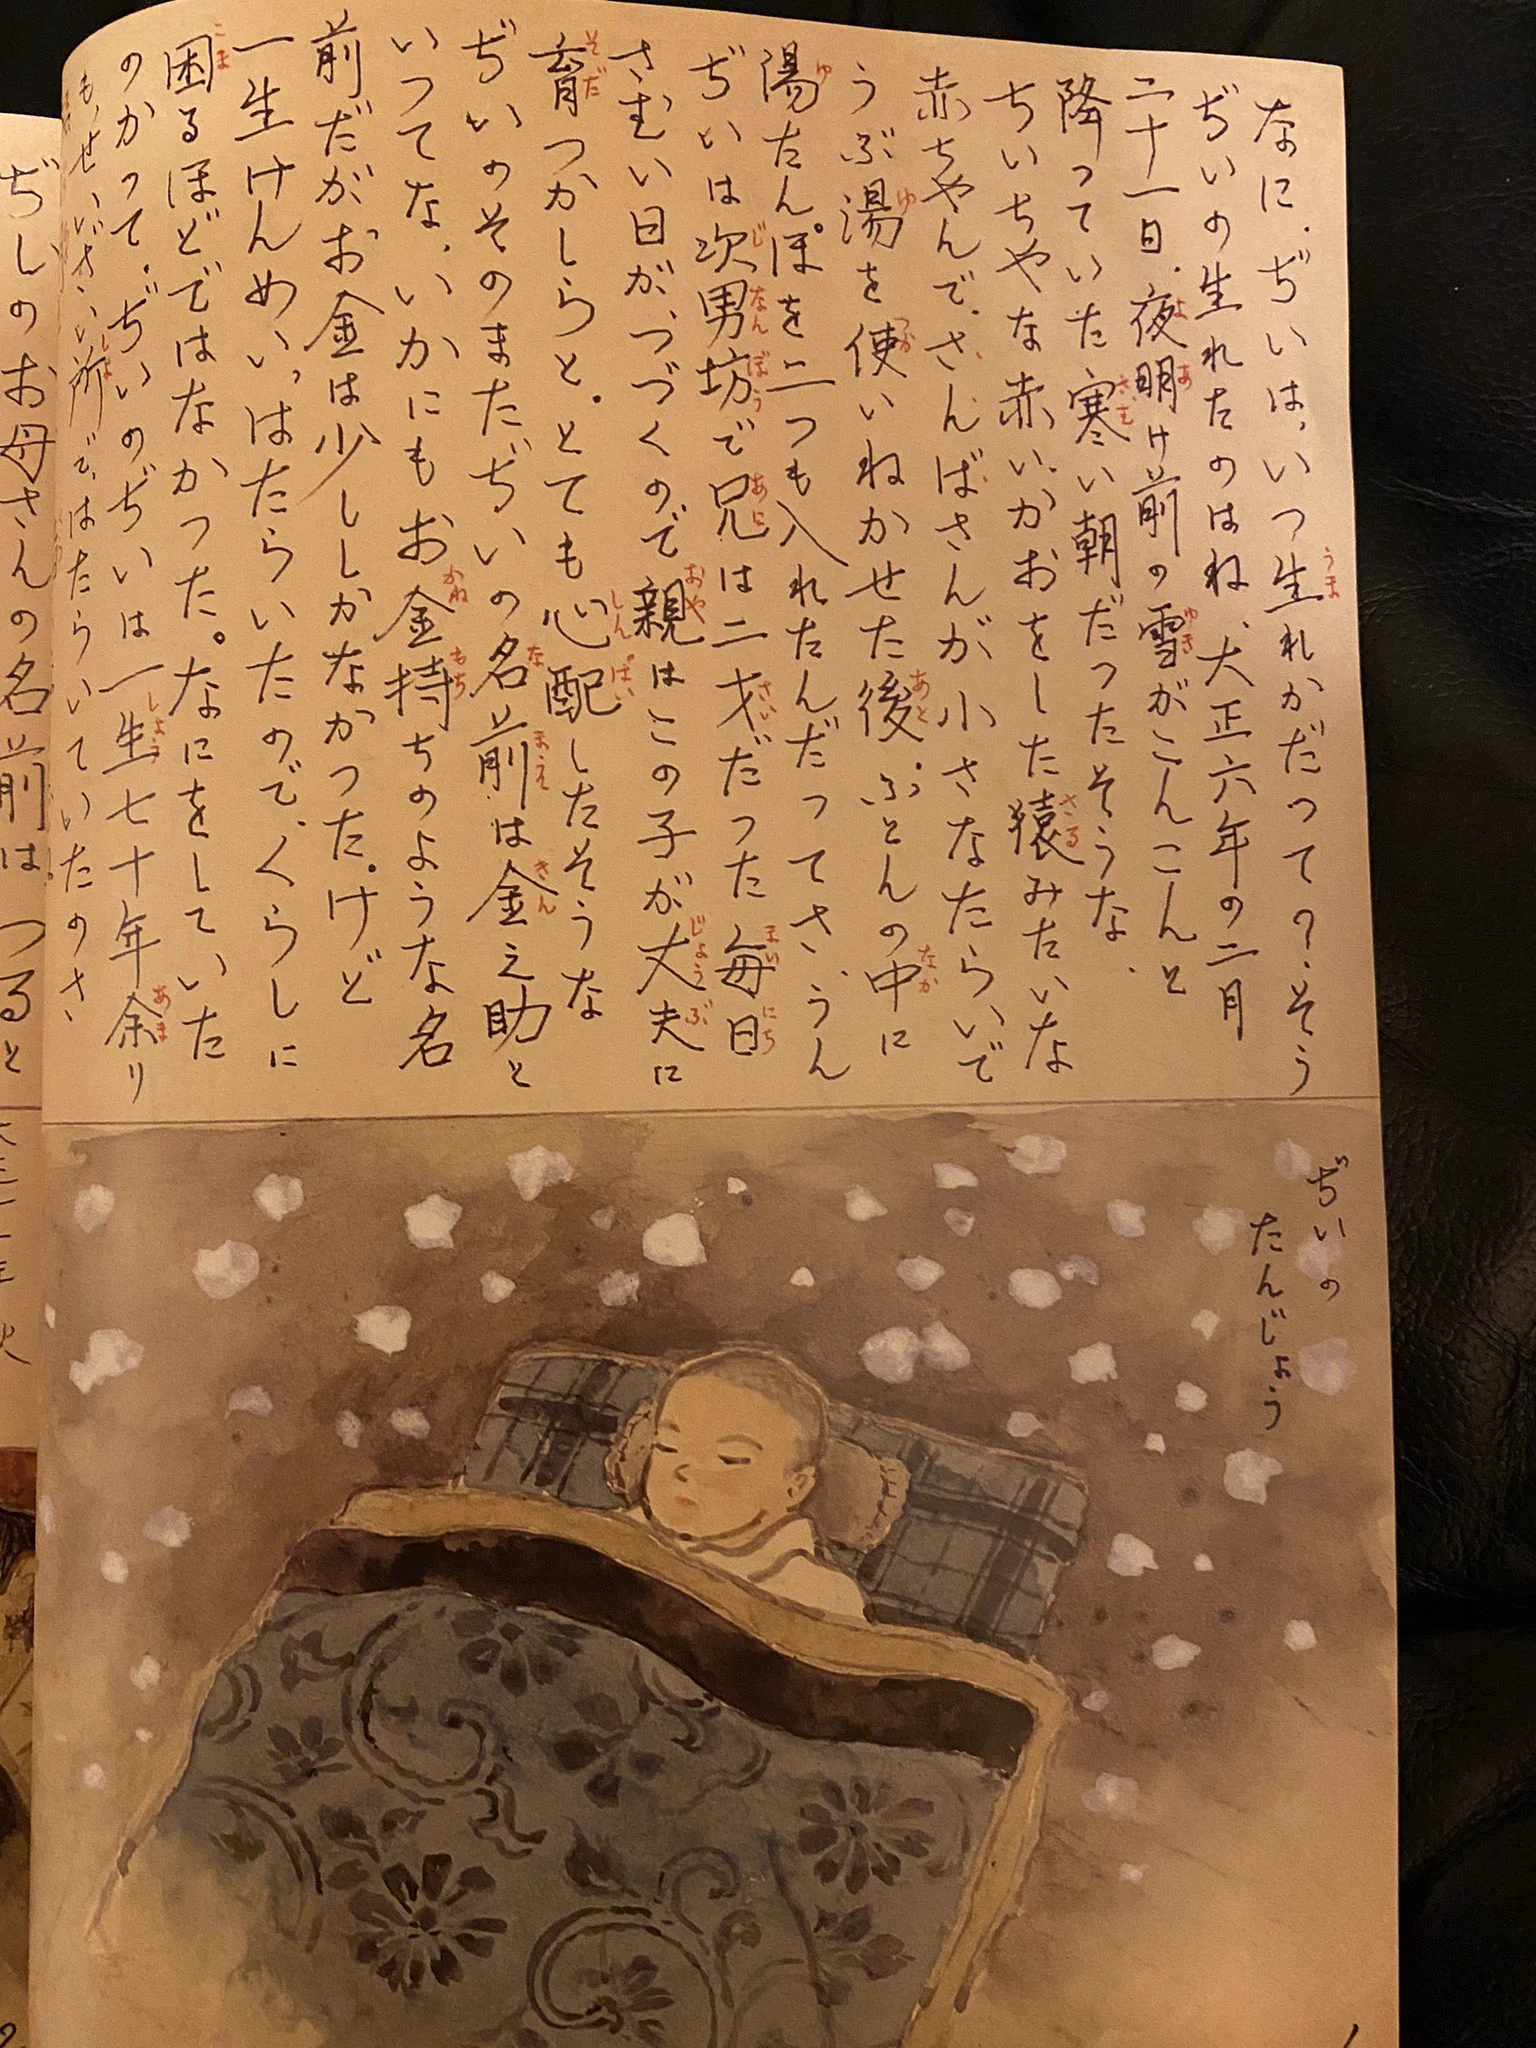 なに、ぢいは、いつ生れかだつて？そう
ぢいの生れたのはね、大正六年の二月
二十一日、夜明け前の雪がこんこんと
降っていた寒い朝だったそうな、
ちいちやな赤い、かおをした猿みたいな
赤ちやんで、さんばさんが小さなたらいで
うぶ湯を使いねかせた後、ふとんの中に
湯たんぽを二つも入れたんだってさ、うん
ぢいは次男坊で兄は二才だった毎日
さむい日が、つづくので親はこの子が丈夫に
育つかしらと。とても心配したそうな
ぢいのそのまたぢいの名前は金之助と
いつてな、いかにもお金持ちのような名
前だがお金は少ししかなかつた。けど
一生けんめい、はたらいたので、くらしに
困るほどではなかつた。なにをしていた
のかつて、ぢいのぢいは一生七十年余り
もっせい いざいい所で、はたらいていたのさ、
ぢいの
たんじょう
ぢしのお母さんの名前は、つると